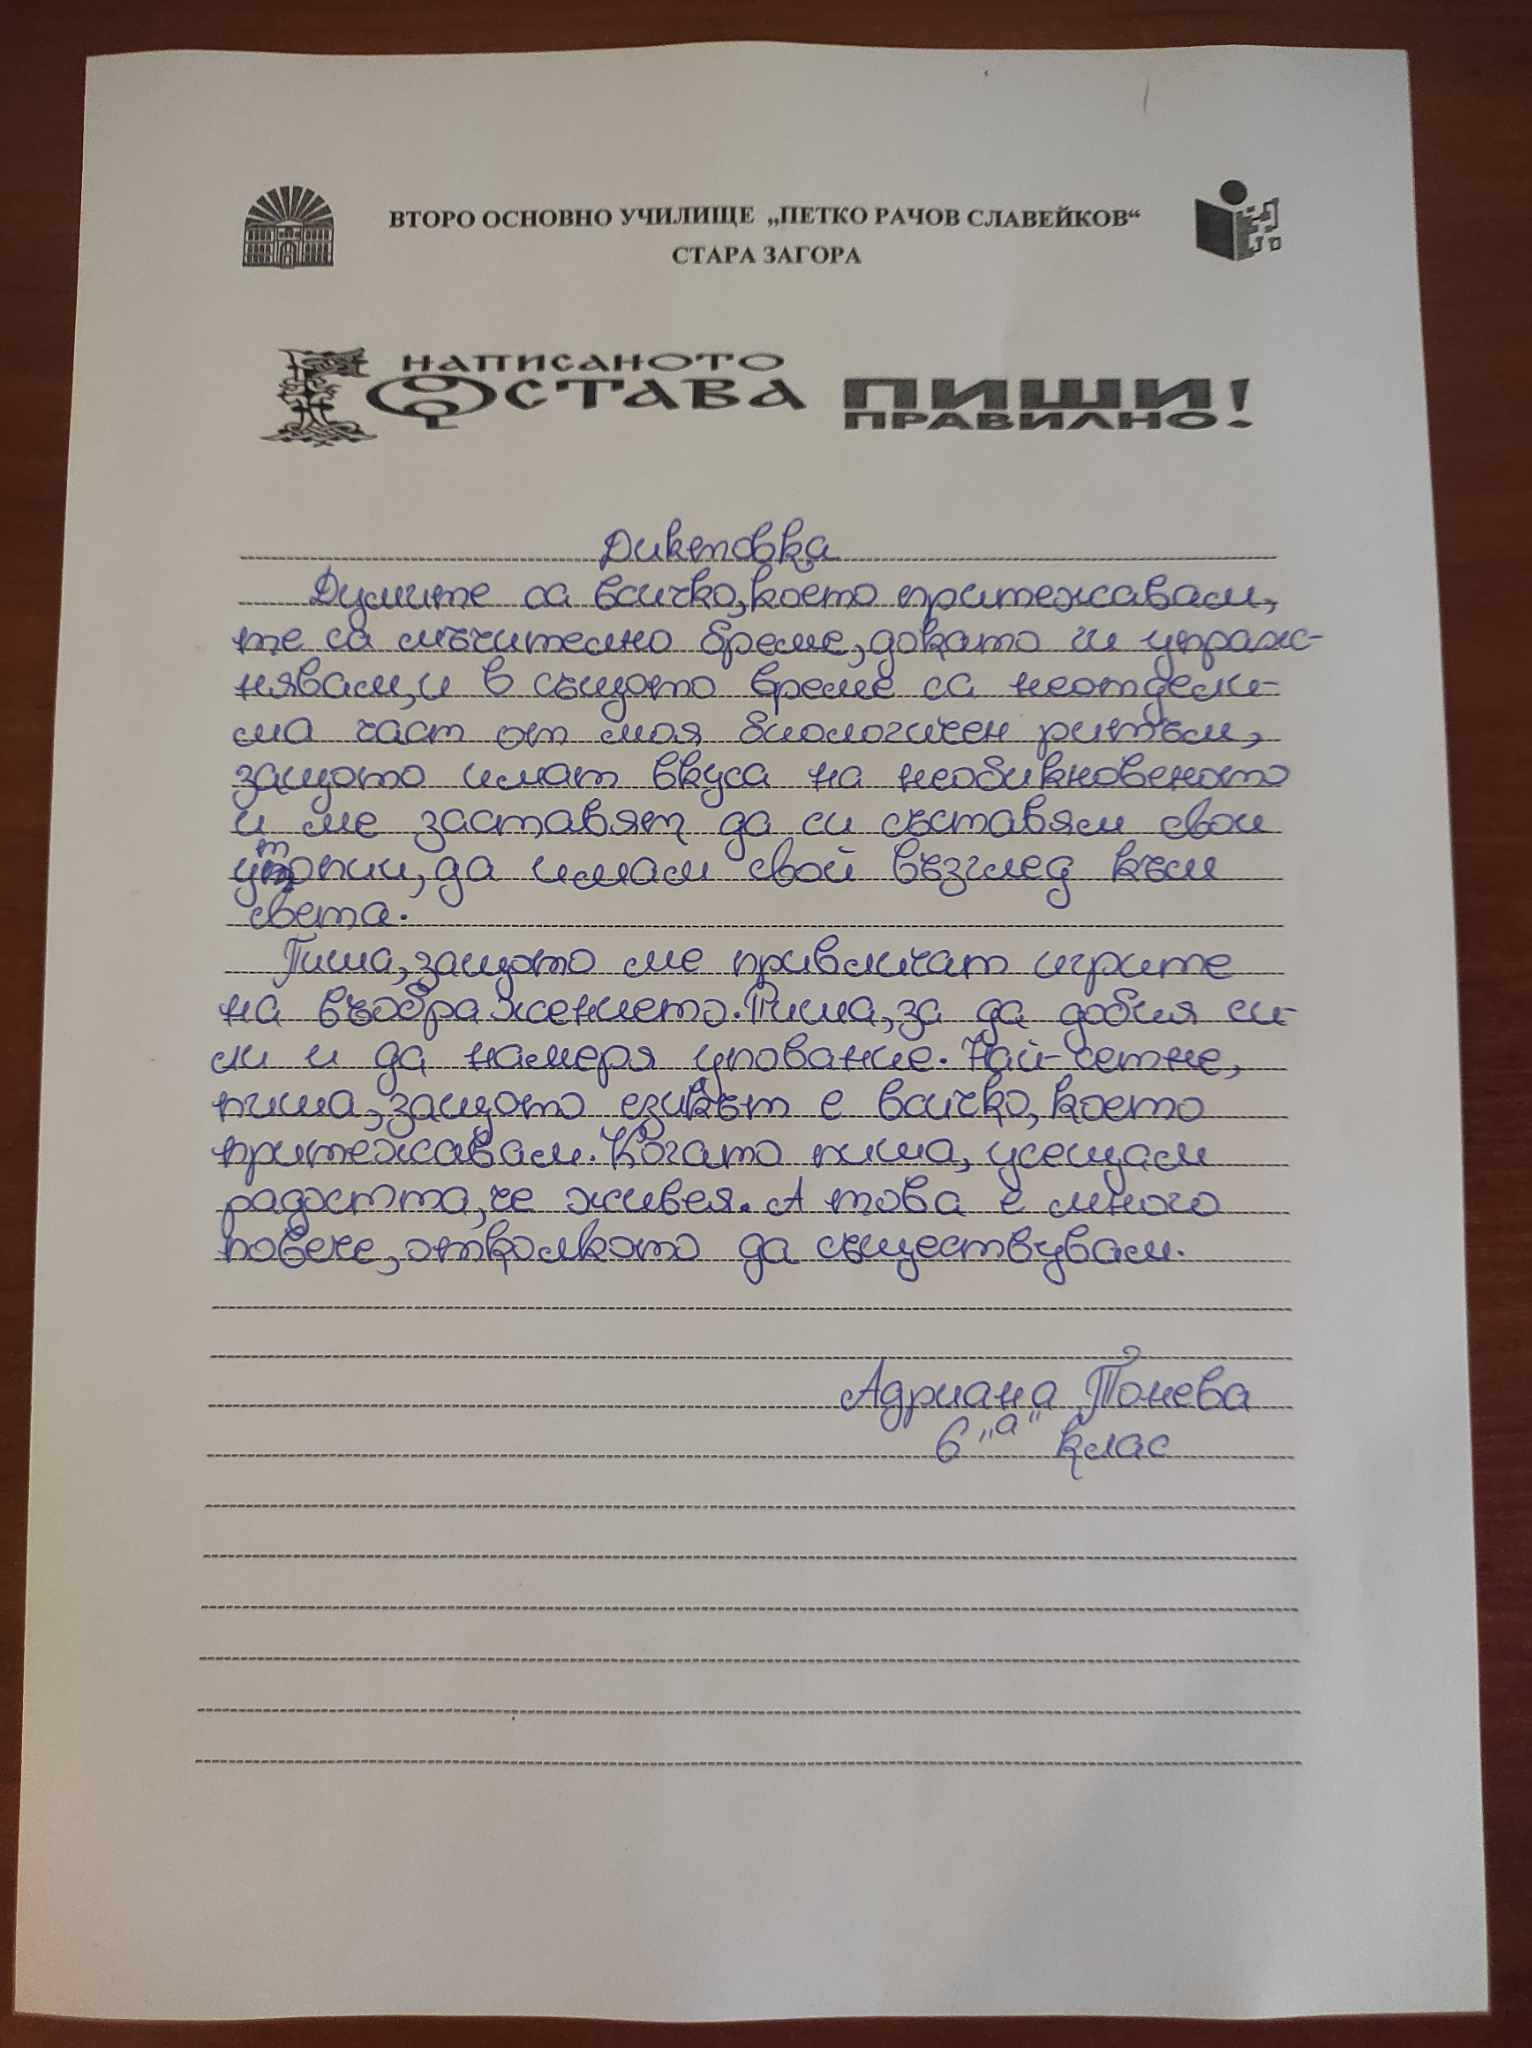 ВТОРО ОСНОВНО УЧИЛИЩЕ „ПЕТКО РАЧОВ СЛАВЕЙКОВ“
СТАРА ЗАГОРА
НАПИСАНОТО
ОСТАВА
ПИШИ
ПРАВИЛНО!
Диктовка
Думите са всичко, което притежавам,
те са мъчително бреме, докато ги упраж-
нявам, и в същото време са неотдели-
ма част от моя биологичен ритъм,
защото имат вкуса на необикновеното
и ме заставят да си съставям свои
утопии, да имам свой възглед към
света.
Пиша, защото ме привличат игрите
на въображението. Пиша, за да добия си-
ли и да намеря упование. Най-сетне,
пиша, защото езикът е всичко, което
притежавам. Когато пиша, усещам
радостта, че живея. А това е много
повече, отколкото да съществувам.
Адриана Тонева
6 „а“ клас